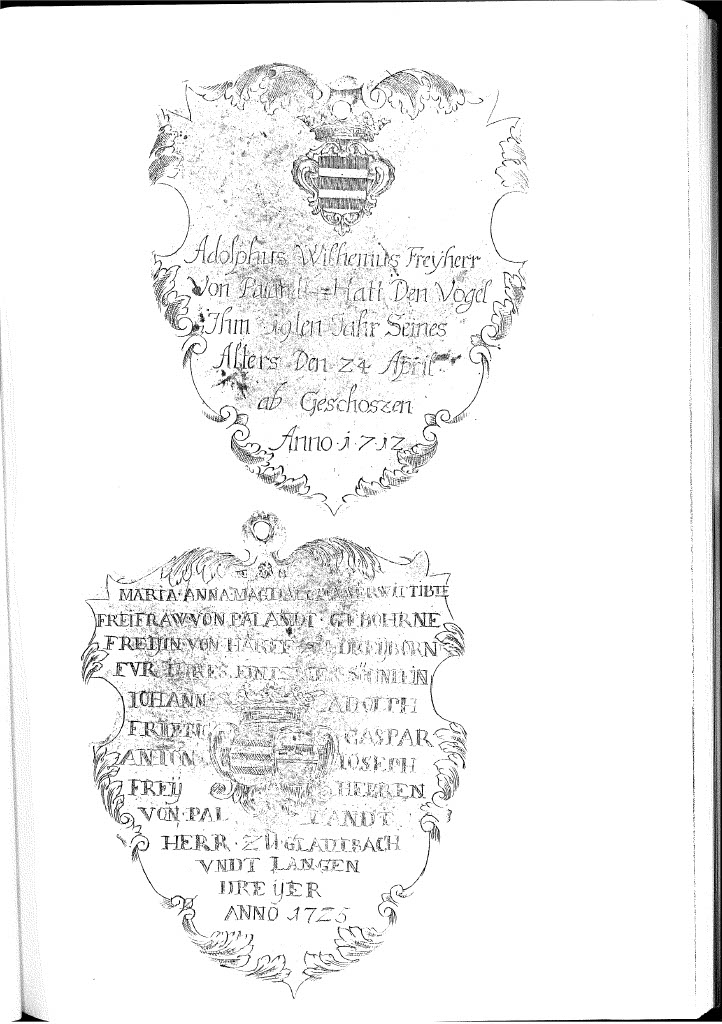 Adolphus Wilhemus Freyherr
Von Palandt Hatt Den Vogel
Ihm 19ten Jahr Seines
Alters Den 24 April
ab Geschoszen
Anno 1712
MARIA ANNA MAGDALENA VERWITTIBTE
FREIFRAW VON PALANDT GEBOHRNE
FREIJIN VON HARFF DREIJBORN
FVR IHRES SÖHNLEIN
IOHANN ADOLPH
CASPAR
ANTON IOSEPH
FREIJ HEEREN
VON PAL LANDT
HERR ZU GLADTBACH
VNDT LANGEN
DREIJER
ANNO 1725